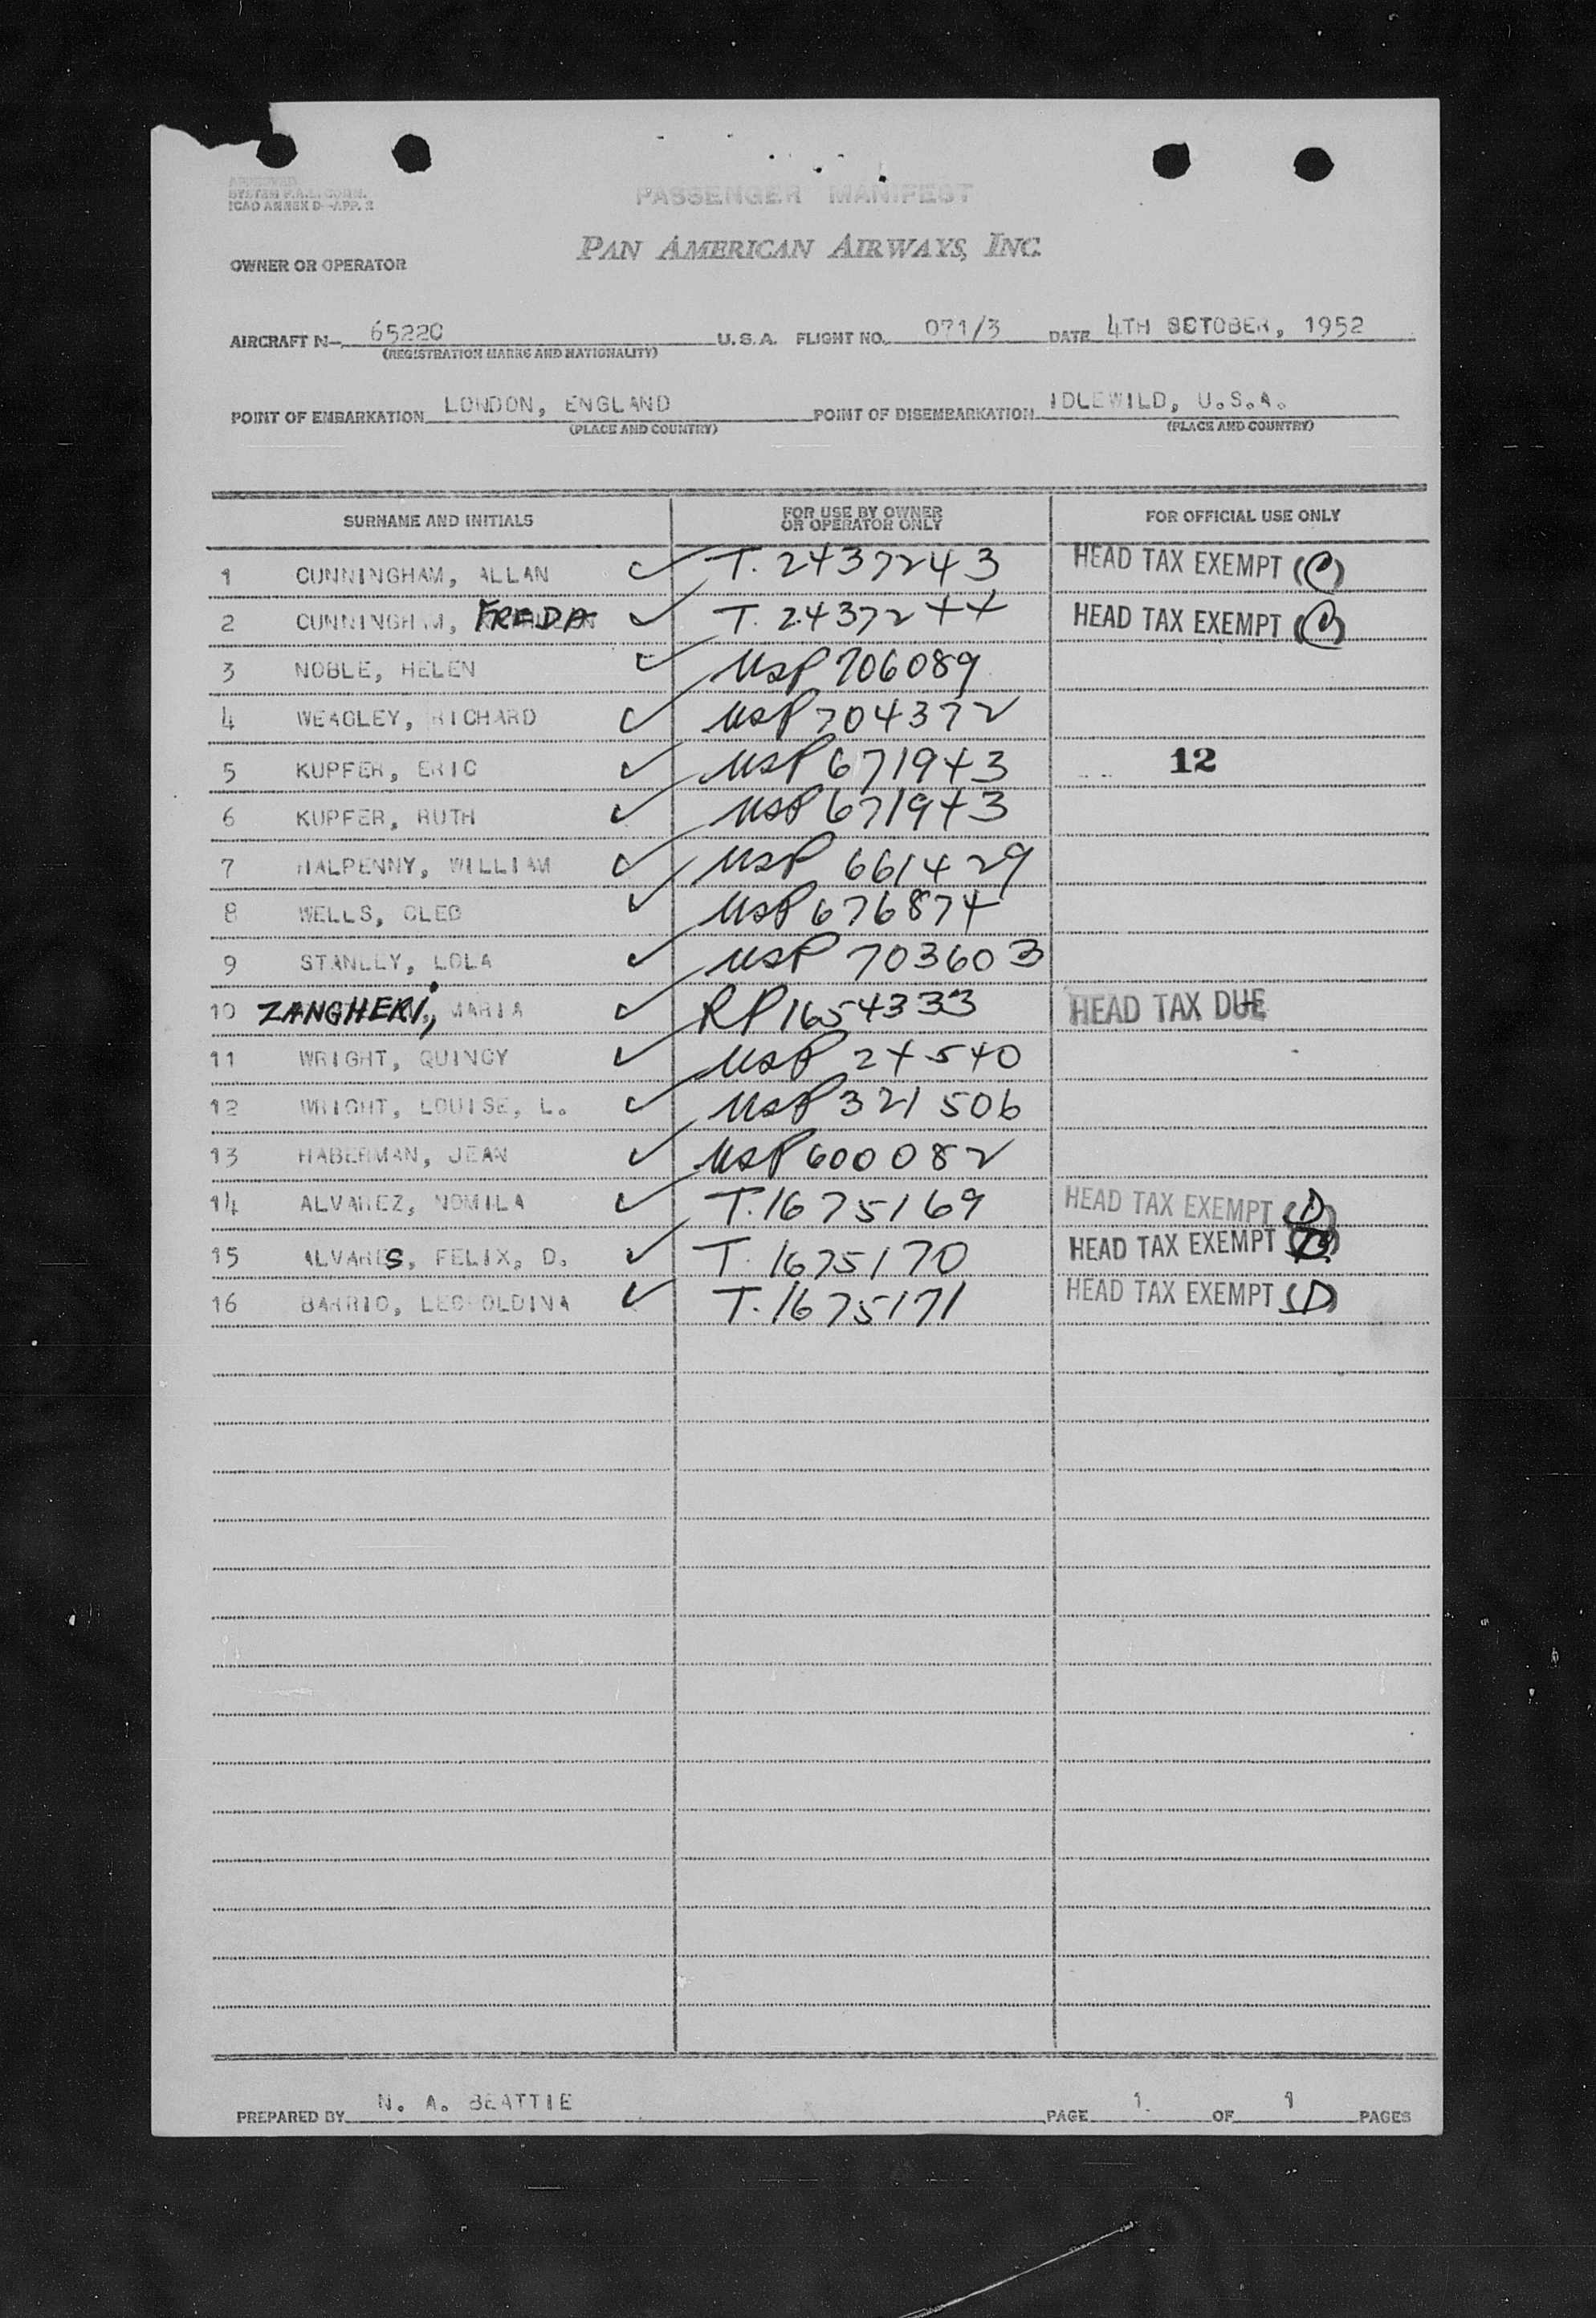 APPROVED
SYSTEM P.A.L. CORN.
ICAO ANNEX D-APP. 2
PASSENGER MANIFEST
PAN AMERICAN AIRWAYS, INC.
OWNER OR OPERATOR
AIRCRAFT N- 65220 U.S.A. FLIGHT NO. 071/3 DATE 4TH OCTOBER, 1952
(REGISTRATION MARKS AND NATIONALITY)
POINT OF EMBARKATION LONDON, ENGLAND POINT OF DISEMBARKATION IDLEWILD, U.S.A.
(PLACE AND COUNTRY) (PLACE AND COUNTRY)
SURNAME AND INITIALS FOR USE BY OWNER OR OPERATOR ONLY FOR OFFICIAL USE ONLY
1 CUNNINGHAM, ALLAN ✓ T. 2437243 HEAD TAX EXEMPT (C)
2 CUNNINGHAM, FREDA ✓ T. 2437244 HEAD TAX EXEMPT (C)
3 NOBLE, HELEN ✓ USP 706089
4 WEAGLEY, RICHARD ✓ USP 704372
5 KUPFER, ERIC ✓ USP 671943 12
6 KUPFER, RUTH ✓ USP 671943
7 HALPENNY, WILLIAM ✓ USP 661429
8 WELLS, CLEO ✓ USP 676874
9 STANLEY, LOLA ✓ USP 703603
10 ZANGHERI, MARIA ✓ RP 1654333 HEAD TAX DUE
11 WRIGHT, QUINCY ✓ USP 24540
12 WRIGHT, LOUISE, L. ✓ USP 321506
13 HABERMAN, JEAN ✓ USP 600082
14 ALVAREZ, NOMILA ✓ T. 1675169 HEAD TAX EXEMPT (D)
15 ALVARES, FELIX, D. ✓ T. 1675170 HEAD TAX EXEMPT (D)
16 BARRIO, LEOPOLDINA ✓ T. 1675171 HEAD TAX EXEMPT (D)
PREPARED BY N. A. BEATTIE PAGE 1 OF 1 PAGES